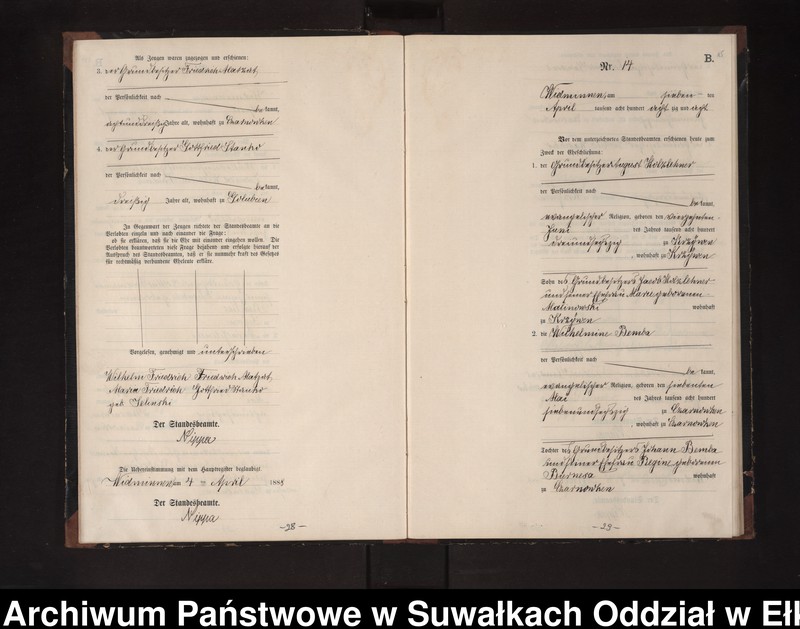 Als Zeugen waren zugezogen und erschienen:
3. der Grundbesitzer Friedrich
der Persönlichkeit nach
be kannt,
achtunddreißig Jahre alt, wohnhaft zu Czarnowken
4. der Grundbesitzer Gottfried
der Persönlichkeit nach
be kannt,
dreißig Jahre alt, wohnhaft zu Golubien
In Gegenwart der Zeugen richtete der Standesbeamte an die
Verlobten einzeln und nach einander die Frage:
ob sie erklären, daß sie die Ehe mit einander eingehen wollen. Die
Verlobten beantworteten diese Frage bejahend und erfolgte hierauf der
Ausspruch des Standesbeamten, daß er sie nunmehr kraft des Gesetzes
für rechtmäßig verbundene Eheleute erkläre.
Vorgelesen, genehmigt und unterschrieben
Wilhelm Friedrich Friedrich
Maria Friedrich Gottfried
geb.
Der Standesbeamte.
Nippa
Die Uebereinstimmung mit dem Hauptregister beglaubigt
Widminnen, am 4 ten April 1888
Der Standesbeamte.
Nippa
-28-
B.
Nr. 14
Widminnen, am sieben ten
April tausend acht hundert acht zig und acht
Vor dem unterzeichneten Standesbeamten erschienen heute zum
Zweck der Eheschließung:
1. der Grundbesitzer August Holzlehner
der Persönlichkeit nach
be kannt,
evangelischer Religion, geboren den vierzehnten
Juni des Jahres tausend acht hundert
dreiundsechszig zu Krzywen
, wohnhaft zu Krzywen
Sohn des Grundbesitzers Jacob Holzlehner
und seiner Ehefrau Marie geborenen
Malinowski wohnhaft
zu Krzywen
2. die Wilhelmine Bemba
der Persönlichkeit nach
be kannt,
evangelischer Religion, geboren den siebenten
Mai des Jahres tausend acht hundert
siebenundsechszig zu Czarnowken
, wohnhaft zu Czarnowken
Tochter des Grundbesitzers Johann Bemba
und seiner Ehefrau Regine geborenen
wohnhaft
zu Czarnowken
-29-
Archiwum Państwowe w Suwałkach Oddział w Ełk